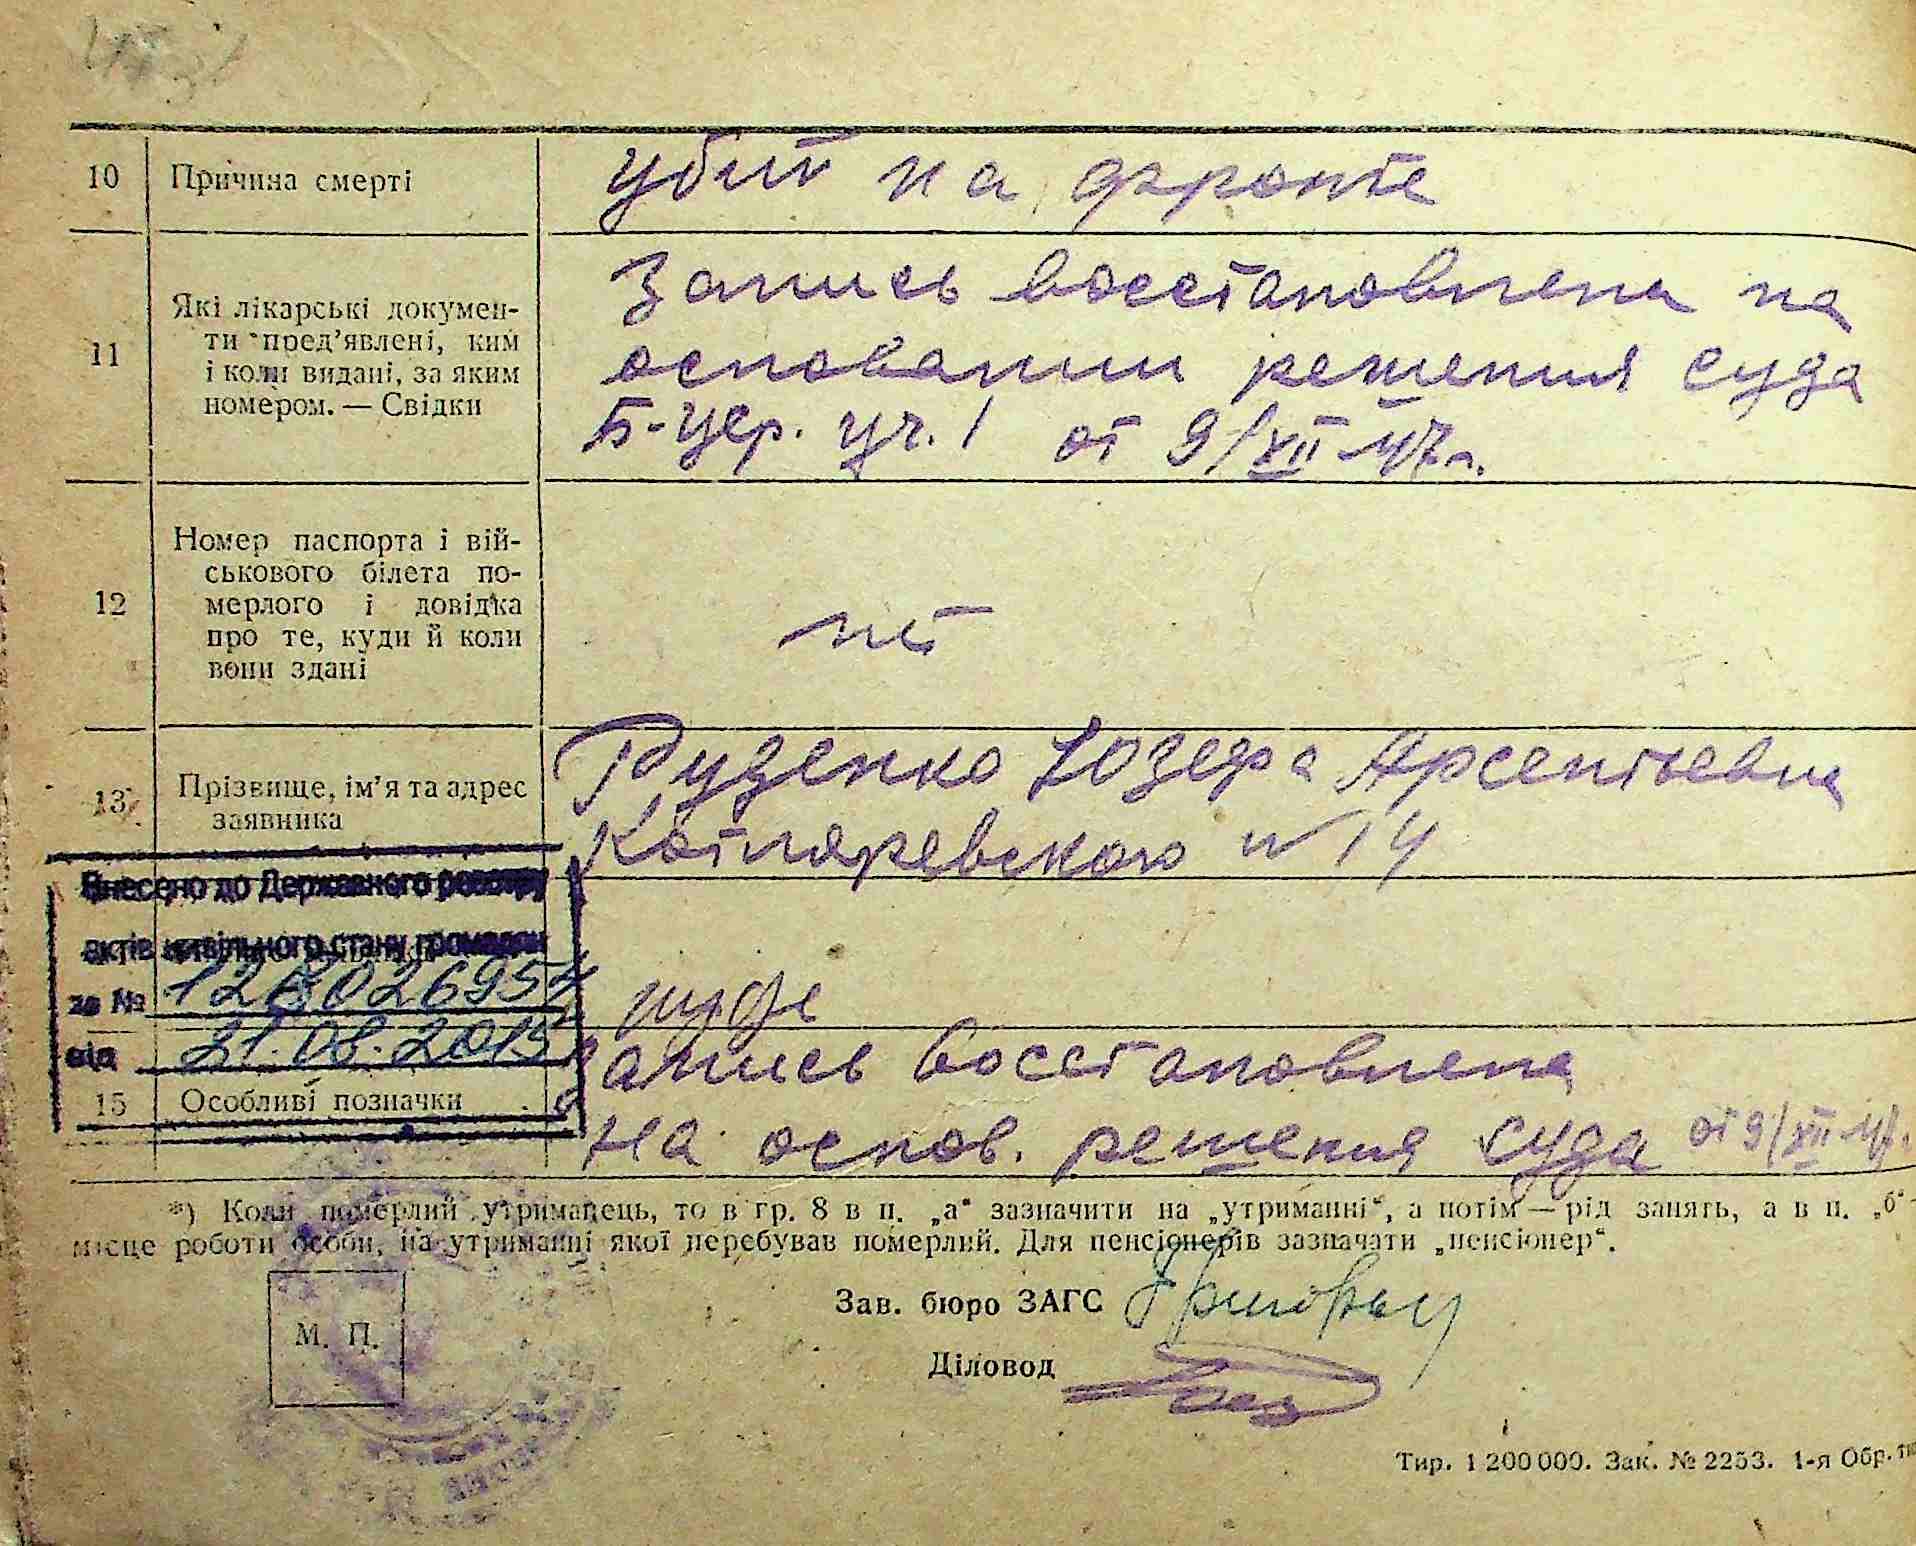 10 Причина смерті убит на фронте
11 Які лікарські докумен-
ти пред'явлені, ким
і коли видані, за яким
номером. — Свідки
Запись восстановлена на
основании решения суда
Б-Цер. уч. 1 от 9/XII-47г.
12 Номер паспорта і вій-
ськового білета по-
мерлого і довідка
про те, куди й коли
вони здані
нет
13 Прізвище, ім'я та адрес
заявника
Руденко Юзефа Арсентьевна
Котляревского N 14
Внесено до Державного реєстру
актів цивільного стану громадян
за №
від 21.08.2015
15 Особливі позначки
Запись восстановлена
на основ. решения суда от 9/XII-47г.
*) Коли померлий утриманець, то в гр. 8 в п. „а“ зазначити на „утриманні“, а потім — рід занять, а в п. „б“ -
місце роботи особи, на утриманні якої перебував померлий. Для пенсіонерів зазначати „пенсіонер“.
М. П.
Зав. бюро ЗАГС
Діловод
Тир. 1 200 000. Зак. № 2253. 1-я Обр.